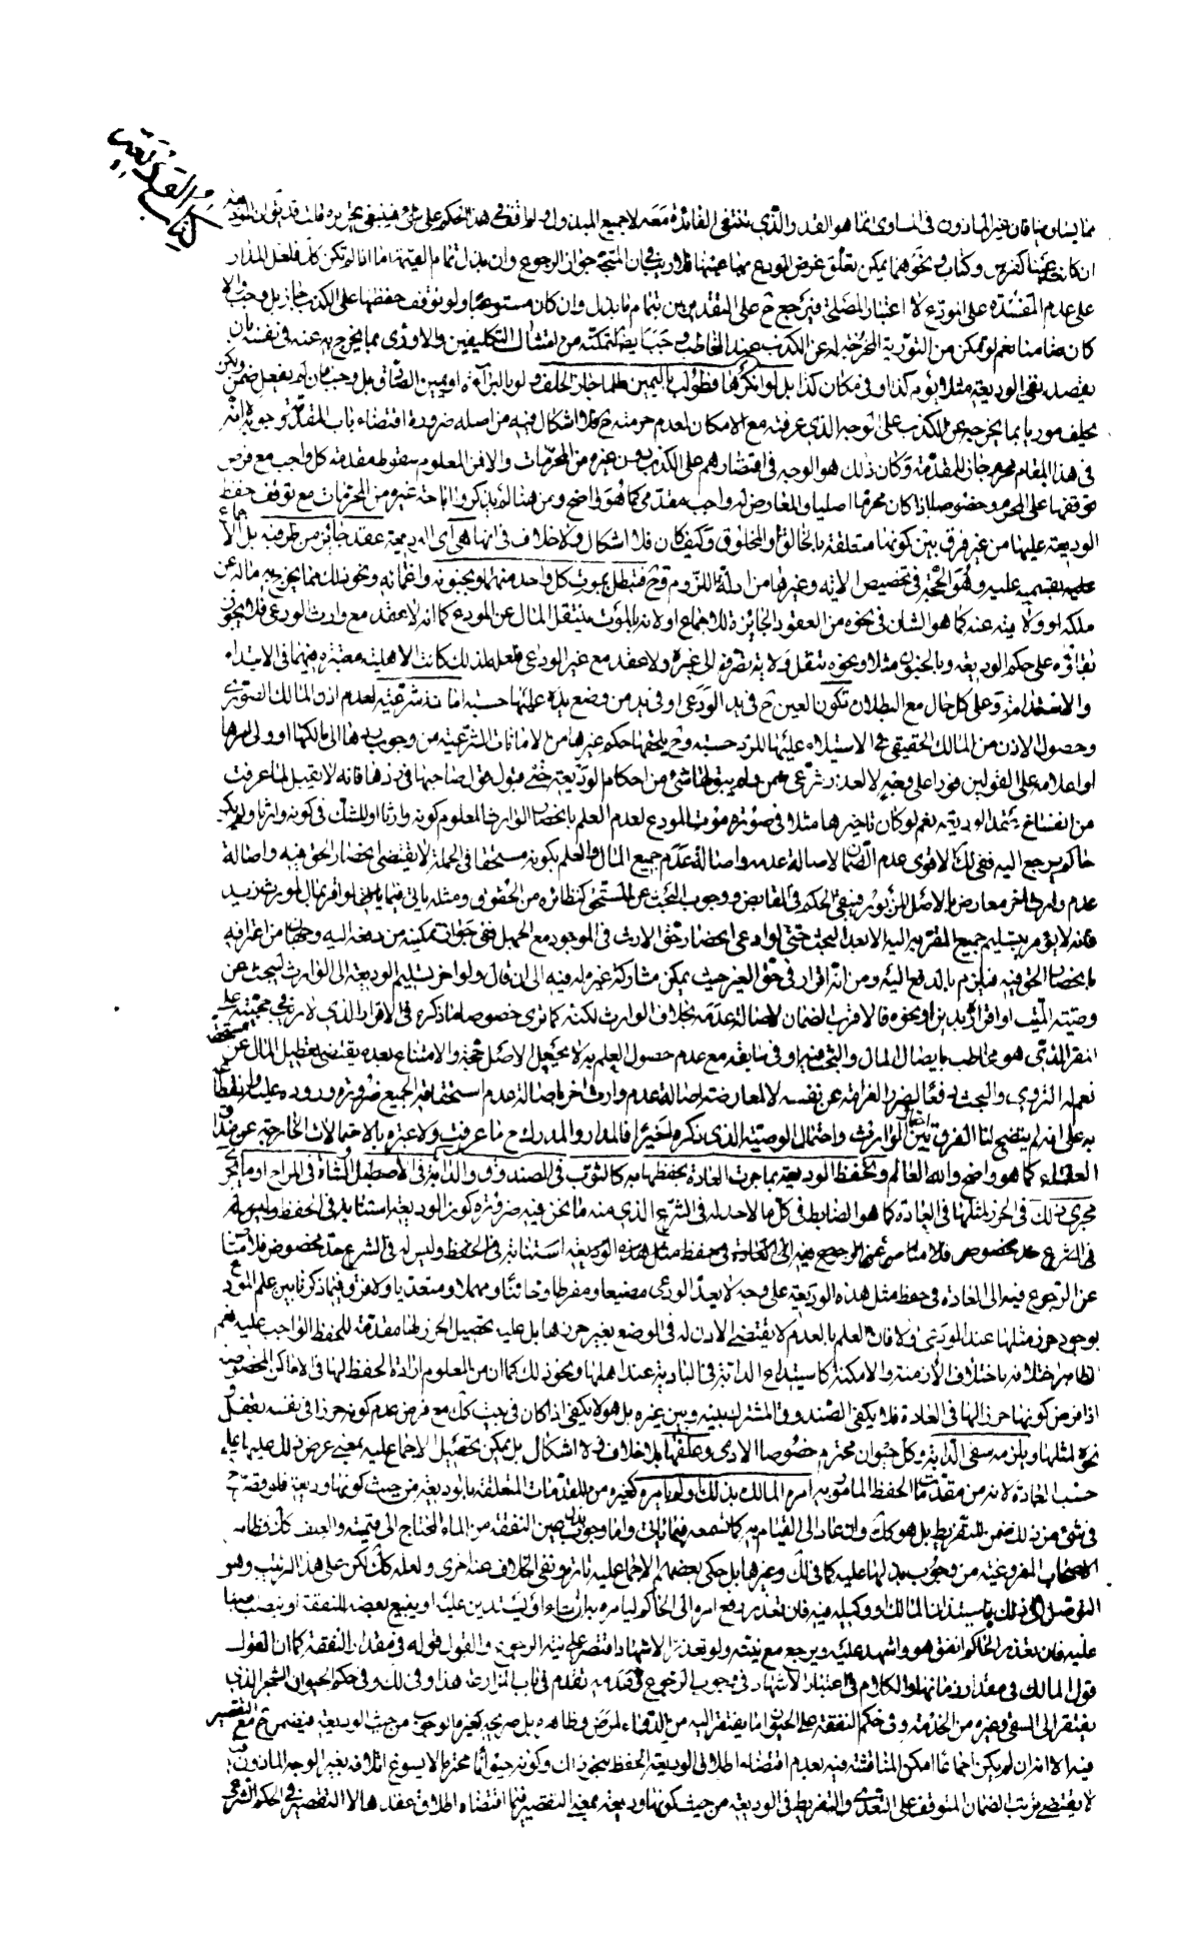 كتاب الوديعة
مما يساويها فان غير المأذون في المساوي انما هو القدر الذي تنتفي الفائدة معه لا جميع المبذول ولم اقف في هذا الحكم على شيء فينبغي تحريره قلت قد يقوى
ان كانت عينا كفرس وكتاب ونحوهما يمكن تعلق غرض المودع بهما عينها فلا ريب في ان المتجه جواز الرجوع وان بذل تمام القيمة اما اذا لم تكن كك فلعل المدار
على عدم المفسدة على المودع لا اعتبار المصلحة فيرجع ح على التقديرين بتمام ما بذل وان كان مستوعبا ولو توقف حفظها على الكذب جاز بل وجب والا
كان ضامنا نعم لو تمكن من التورية المخرجة له عن الكذب عند المخاطب وجب
يقصد نفي الوديعة مثلا يوم كذا او في مكان كذا بل لو انكرها فطولب باليمين ظلما جاز الحلف
يحلف موريا بما يخرجه عن الكذب على الوجه الذي عرفته مع الامكان لعدم حرمته ح فلا اشكال فيه من اصله ضرورة اقتضاء باب المقدمة
في هذا المقام جاز للمقدمة وكان ذلك هو الوجه في اقتصارهم على الكذب دون غيره من المحرمات والا فمن المعلوم سقوط مقدمة كل واجب مع فرض
توقفها على المحرم وخصوصا اذا كان محرما اصليا والمعارض له واجب مقدمي كما هو واضح ومن هنا لم يذكروا اباحة غيره من المحرمات مع توقف حفظ
الوديعة عليها من غير فرق بين كونها متعلقة بالخالق او المخلوق وكيف كان فلا اشكال ولا خلاف في انها هي اي الوديعة عقد جائز من طرفيه بل الاجماع
بقسميه عليه وهو الحجة في تخصيص الاية وغيرها من ادلة اللزوم وح فتبطل بموت كل واحد منهما وبجنونه واغمائه ونحو ذلك مما يخرج به ماله عن
ملكه او ولايته عنه كما هو الشان في نحوه من العقود الجائزة للاجماع او لانه بالموت ينتقل المال عن المودع كما انه لا عقد مع وارث الودعي فلا يجوز
بقاؤه على حكم الوديعة وبالجنون مثلا ونحوه تنتقل ولاية تصرفه الى غيره ولا عقد مع غير الودعي فعله لذلك كانت الاهلية معتبرة فيهما في الابتداء
والاستدامة وعلى كل حال مع البطلان تكون العين ح في يد الودعي او في يد من وضع يده عليها حسبة امانة شرعية لعدم اذن المالك الصوري
وحصول الاذن من المالك الحقيقي في الاستيلاء عليها للرد حسبة وح يلحقها حكم غيرها من الامانات الشرعية من وجوب ردها الى مالكها او ولي امرها
او اعلامه على القولين فورا على وجه لا لعذر شرعي ضمن ولم يبق لها شيء من احكام الوديعة حتى قبول قول صاحبها في ردها فانه لا يقبل لما عرفت
من انفساخ عقد الوديعة نعم لو كان تاخيرها مثلا في صورة موت المودع لعدم العلم بانحصار الوارث المعلوم كونه وارثا او للشك في كونه وارثا ولم يكن
حاكم يرجع اليه ففي لك الاقوى عدم الضمان لاصالة عدمه واصالة عدم جميع المال والعلم بكونه مستحقا في الجملة لا يقتضي انحصار الحق فيه واصالة
عدم وارث آخر معارض بالاصل المزبور فيبقى الحكم في القابض ووجوب البحث عن المستحق كنظائره من الحقوق ومثله ياتي فيما لو اقر بمال لمورث زيد
فانه لا يؤمر بتسليم جميع المقر به اليه الا بعد البحث حتى لو ادعى انحصار حق الارث في الموجود مع الجهل ففي جواز تمكينه من دفعه اليه وجهان من اعترافه
بانحصار الحق فيه فيلزم بالدفع اليه ومن انه اقرار في حق الغير حيث يمكن مشاركة غيره له فيه الى ان قال ولو اخر تسليم الوديعة الى الوارث ليبحث عن
وصية الميت او اقراره بدين او نحوه فالاقرب الضمان لاصالة عدمه بخلاف الوارث لكنه كما ترى خصوصا ما ذكره في الاقرار الذي لا ريب في حجيته على
المقر الذي هو مخاطب بايصال المال والبحث
نعم له التروي والبحث دفعا لضرر الغرامة عن نفسه لا لمعارضة اصالة عدم وارث اخر باصالة عدم استحقاقه الجميع ضرورة ورودها عليها
به على انه لم يتضح لنا الفرق بين الوارث واحتمال الوصية الذي ذكره اخيرا فالمدار والمدرك ح ما عرفت ولا عبرة بالاحتمالات الخارجة عن مذاق
العقلاء كما هو واضح والله العالم وتحفظ الوديعة بما جرت العادة بحفظها به كالثوب في الصندوق والدابة في الاصطبل والشاة في المراح او ما يجري
مجرى ذلك في الحرز لمثلها في العادة كما هو الضابط في كل ما لا حد له في الشرع الذي منه ما نحن فيه ضرورة كون الوديعة استنابة في الحفظ وليس له
في الشرع حد مخصوص فلا مناص عن الرجوع فيه الى العادة في حفظ مثل هذه الوديعة استنابة في الحفظ وليس له في الشرع حد مخصوص فلا مناص
عن الرجوع فيه الى العادة في حفظ مثل هذه الوديعة على وجه لا يعد الودعي مضيعا ومفرطا وخائنا ومهملا ومتعديا ولا فرق فيما ذكرنا بين علم المودع
بوجود حرز مثلها عند الودعي ولا فان العلم بالعدم لا يقتضي الاذن له في الوضع بغير حرزها بل عليه تحصيل الحرز لها مقدمة للحفظ الواجب عليه نعم
الظاهر اختلافه باختلاف الازمنة والامكنة كاستيداع الدابة في البادية عند اهلها ونحو ذلك كما ان من المعلوم ارادة الحفظ لها في الاماكن المخصوصة
اذا فرض كونها حرزا لها في العادة فلا يكفي الصندوق المشترك بينه وبين غيره بل هو لا يكفي اذا كان في بيت كك مع فرض عدم كونه حرزا في نفسه
لمثلها ويلزمه سقي الدابة وكل حيوان محترم خصوصا الادمي وعلفها بلا خلاف ولا اشكال بل يمكن تحصيل الاجماع عليه بمعنى عرض ذلك عليها على
حسب العادة لانه من مقدمات الحفظ المامور به امره المالك بذلك او لم يامره كغيره من المقدمات المتعلقة بالوديعة من حيث كونها وديعة فلو قصر ح
في شيء من ذلك ضمن للتفريط بل هو كك ولو عاد الى القيام به كما تسمعه فيما ياتي واما وجوب بذل عين النفقة من الماء المحتاج الى قيمته والعلف كك فظاهر
الاصحاب المفروغية من وجوب بذلها عليه كما في لك وغيرها بل حكى بعضهم الاجماع عليه تارة ونفي الخلاف عنه اخرى ولعله كك لكن على هذا الترتيب وهو
التوصل الى ذلك باستئذان المالك او وكيله فيه فان تعذر رفع امره الى الحاكم ليامره به ان شاء او يستدين عليه او يبيع بعضه للنفقة او ينصب امينا
عليه فان تعذر الحاكم انفق هو واشهد عليه ويرجع مع نيته ولو تعذر الاشهاد اقتصر على نية الرجوع والقول قوله في مقدار النفقة كما ان القول
قول المالك في مقدار زمانها والكلام في اعتبار الاشهاد في وجوب الرجوع وعدمه تقدم في باب المزارعة هذا وفي لك وفي حكم الحيوان الشجر الذي
يفتقر الى السقي وغيره من الخدمة وفي حكم النفقة على الحيوان ما يفتقر اليه من الدواء لمرض وظاهره بل صريحه كغيره الوجوب من حيث الوديعة فيضمن ح مع التقصير
فيه الا انه ان لم يكن اجماعا امكن المناقشة فيه بعدم اقتضاء اطلاق الوديعة الحفظ بنحو ذلك وكونه حيوانا محترما لا يسوغ اتلافه بغير الوجه المأذون فيه
لا يقتضي ترتب الضمان المتوقف على التعدي والتفريط في الوديعة من حيث كونها وديعة بمعنى التقصير فيما اقتضاه اطلاق عقدها لا التقصير في الحكم الشرعي